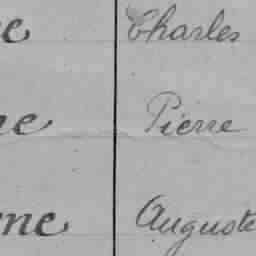 e Charles
ne Pierre
nne Auguste